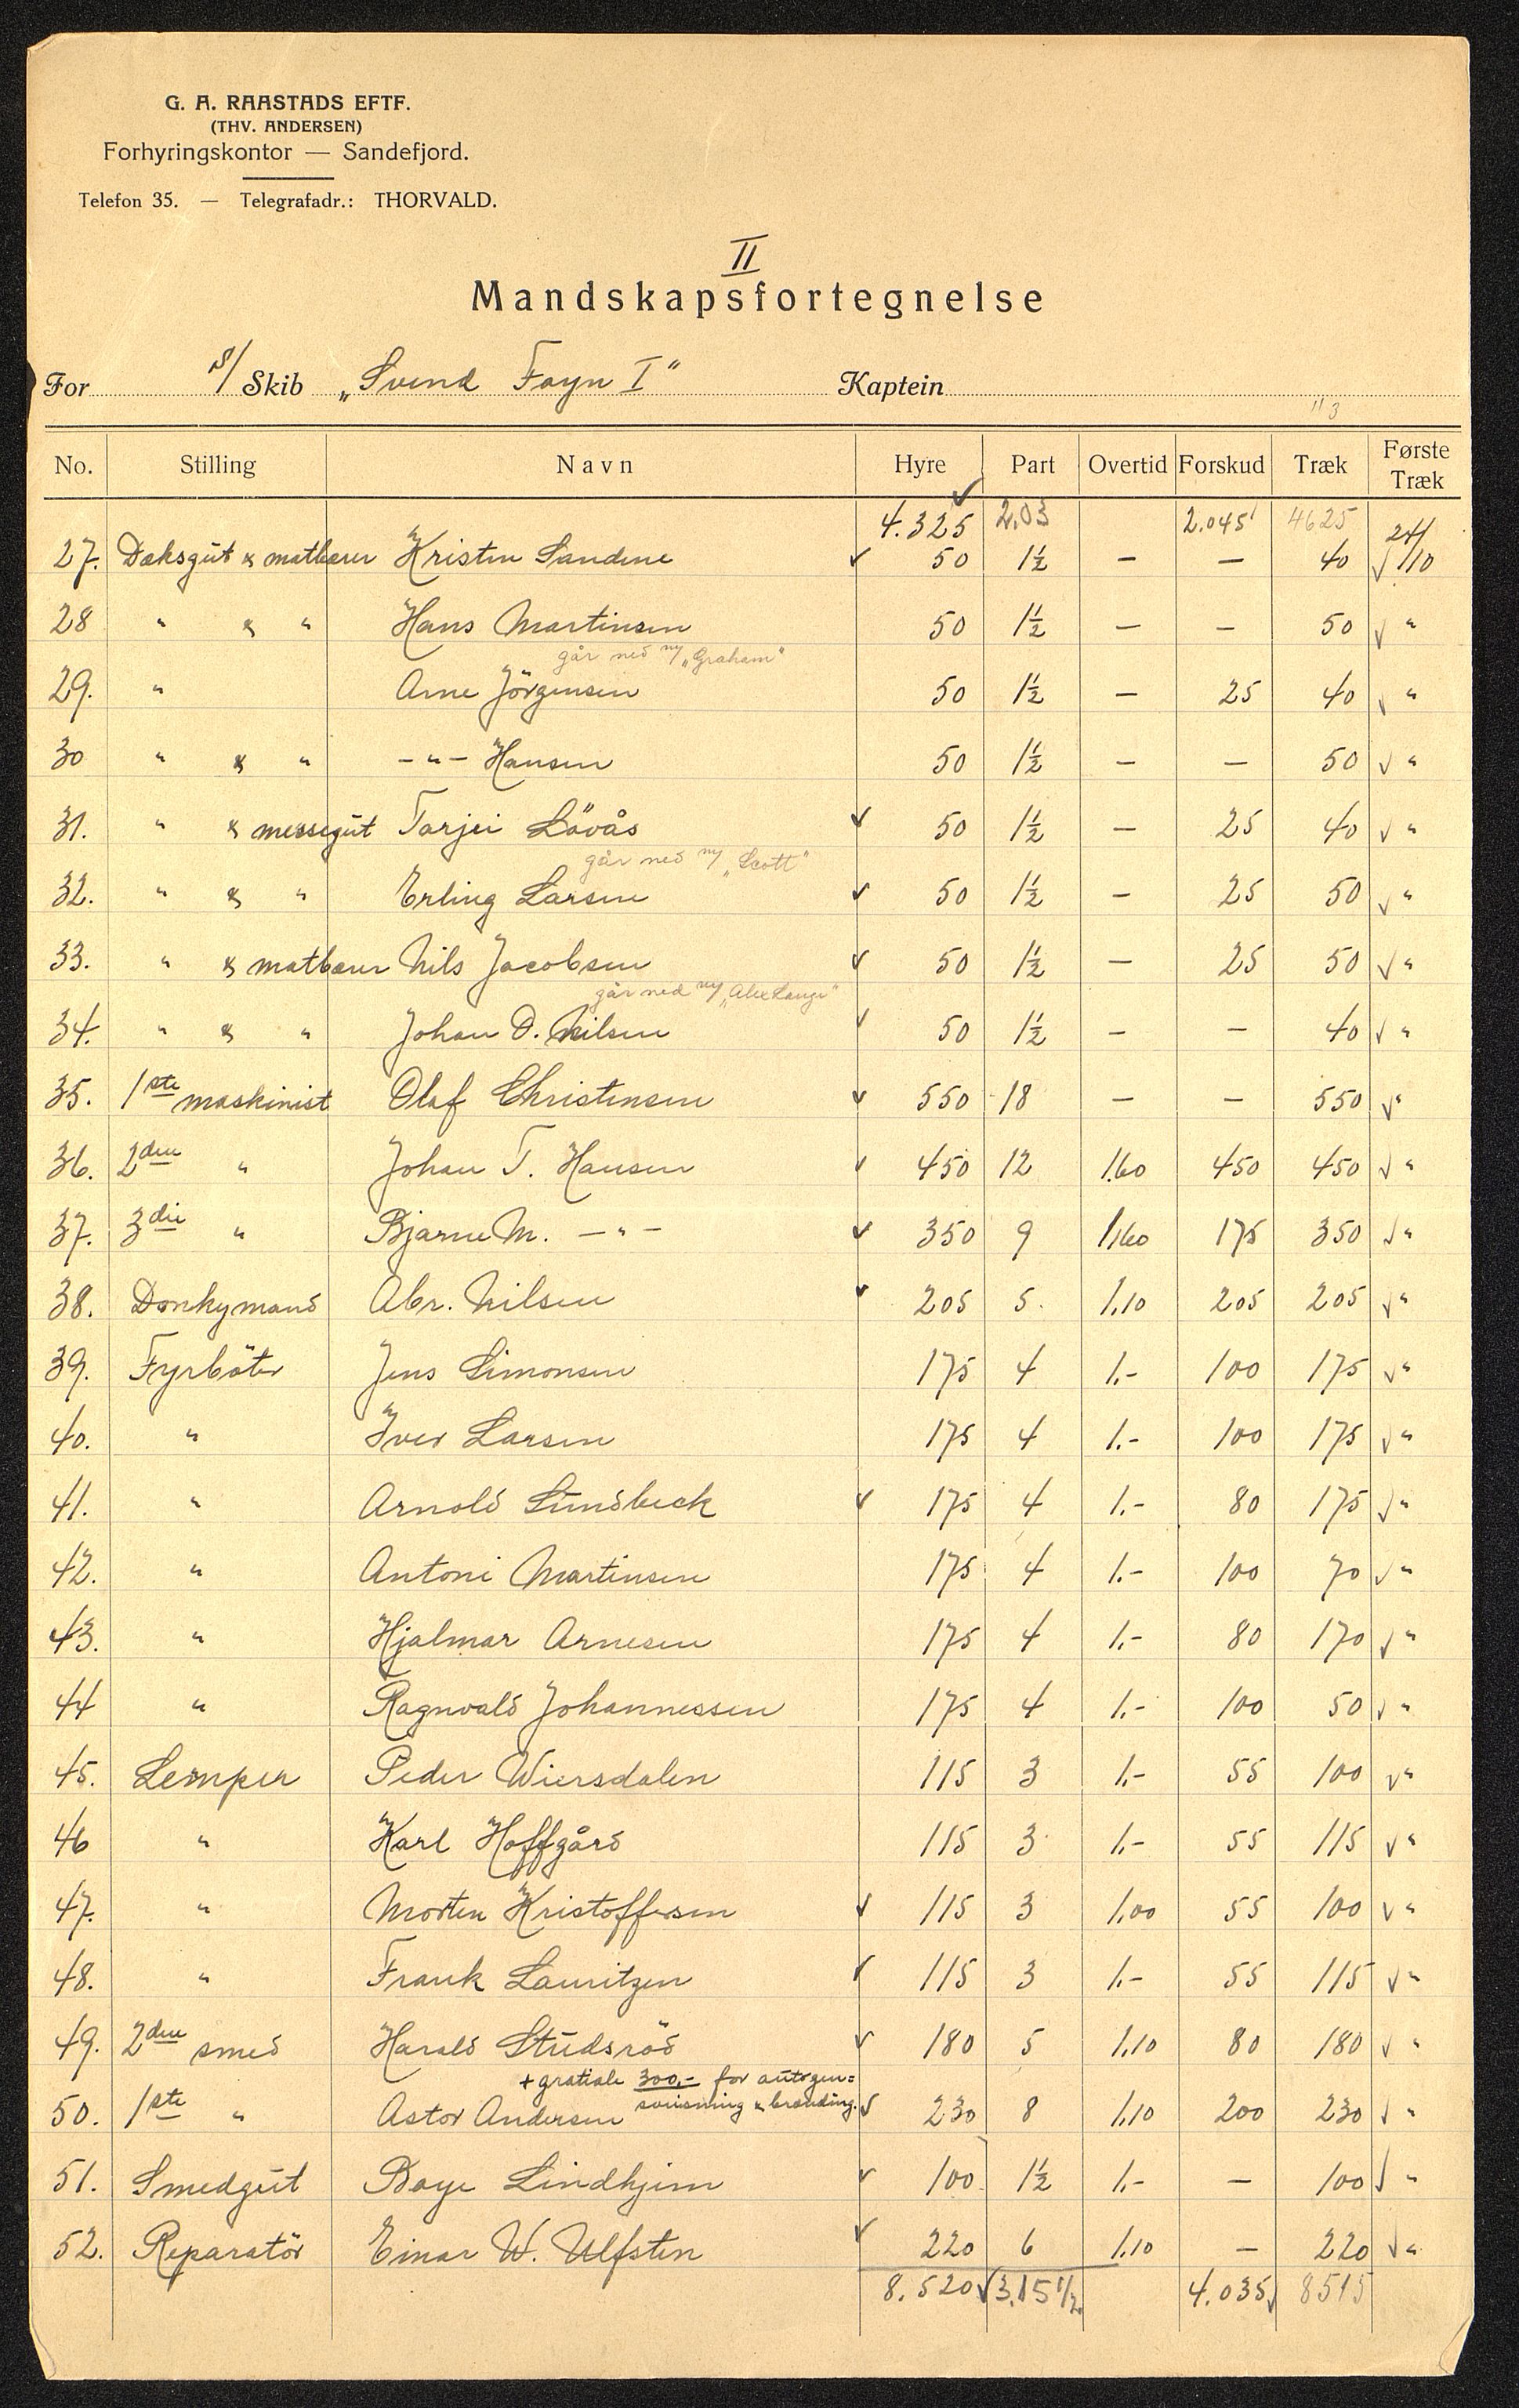 G. A. RAASTADS EFTF.
(THV. ANDERSEN)
Forhyringskontor — Sandefjord.
Telefon 35. — Telegrafadr.: THORVALD.
II
Mandskapsfortegnelse
For S/ Skib „Svend Foyn I" Kaptein
113
No. Stilling Navn Hyre Part Overtid Forskud Træk Første Træk
4.325 2.03 2.045 4625
27. Dæksgut & matbærer Kristen Sandene 50 1½ — — 40 24/10
28 " & " Hans Martinsen 50 1½ — — 50 "
går ned m/ „Graham"
29. " Arne Jörgensen 50 1½ — 25 40 "
30 " & " -"- Hansen 50 1½ — — 50 "
31. " & messegut Tarjei Lövås 50 1½ — 25 40 "
går ned m/ „Scott"
32. " & " Erling Larsen 50 1½ — 25 50 "
33. " & matbærer Nils Jacobsen 50 1½ — 25 50 "
går ned m/ „Alex Lange"
34. " & " Johan O. Nilsen 50 1½ — — 40 "
35. 1ste maskinist Olaf Christensen 550 18 — — 550 "
36. 2den " Johan T. Hansen 450 12 1.60 450 450 "
37. 3die " Bjarne M. -"- 350 9 1,60 175 350 "
38. Donkymand Abr. Nilsen 205 5. 1,10 205 205 "
39. Fyrböter Jens Simonsen 175 4 1.- 100 175 "
40. " Iver Larsen 175 4 1.- 100 175 "
41. " Arnold Lundbeck 175 4 1.- 80 175 "
42. " Antoni Martinsen 175 4 1.- 100 70 "
43. " Hjalmar Arnesen 175 4 1.- 80 170 "
44 " Ragnvald Johannessen 175 4 1.- 100 50 "
45. Lemper Peder Wiersdalen 115 3 1.- 55 100 "
46 " Karl Hoffgård 115 3 1.- 55 115 "
47. " Morten Kristoffersen 115 3 1,00 55 100 "
48. " Frank Lauritzen 115 3 1.- 55 115 "
49. 2den smed Harald Studsröd 180 5 1,10 80 180 "
+ gratiale 300,- for autogen=
50. 1ste " Astor Andersen sveisning & brænding. 230 8 1,10 200 230 "
51. Smedgut Boye Lindhjem 100 1½ 1.- — 100 "
52. Reparatör Einar W. Ulfsten 220 6 1,10 — 220 "
8.520 3.15 1/2 4.035 8515